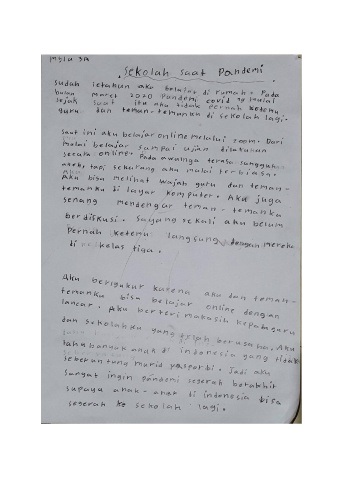 Sekolah saat Pandemi
sudah setahun aku belajar di rumah. Pada
bulan maret 2020 Pandemi covid 19 mulai
sejak saat itu aku tidak pernah ketemu
guru dan teman-temanku di sekolah lagi.
saat ini aku belajar online melalui zoom. Dari
mulai belajar sampai ujian dilakukan
secara online. Pada awalnya terasa sungguh
aneh, tapi sekarang aku mulai terbiasa.
Aku bisa melihat wajah guru dan teman-
temanku di layar komputer. Aku juga
senang mendengar teman-temanku
berdiskusi. Sayang sekali aku belum
Pernah ketemu langsung dengan mereka
di kelas tiga.
Aku bersyukur karena aku dan teman-
temanku bisa belajar online dengan
lancar. Aku berterimakasih kepada guru
dan sekolahku yang berusaha. Aku
tahu banyak anak di indonesia yang tidak
seberuntung murid. Jadi aku
sangat ingin pandemi segera berakhir
supaya anak-anak di indonesia bisa
segera ke sekolah lagi.